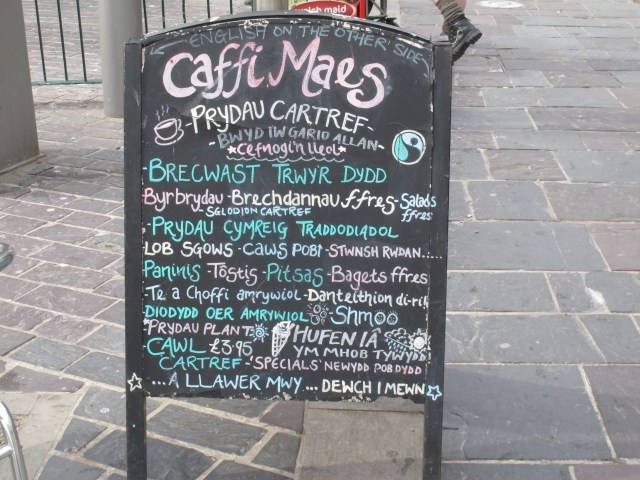 ENGLISH ON THE OTHER SIDE
Caffi Maes
-PRYDAU CARTREF-
-BWYD I'W GARIO ALLAN-
*Cefnogi'n lleol*
BRECWAST TRWYR DYDD
Byrbrydau-Brechdannau ffres-Salads ffres
SGLODION CARTREF
-PRYDAU CYMREIG TRADDODIADOL
LOB SGOWS-CAWS POBI-STWNSH RWDAN.....
Paninis-Tostis-Pitsas-Bagets ffres
-Te a Choffi amrywiol-Danteithion di-ri
DIODYDD OER AMRYWIOL -Shmoo
PRYDAU PLANT HUFEN IÂ
YM MHOB TYWYDD
-CAWL £3.95
CARTREF-'SPECIALS' NEWYDD POB DYDD
...A LLAWER MWY...DEWCH I MEWN